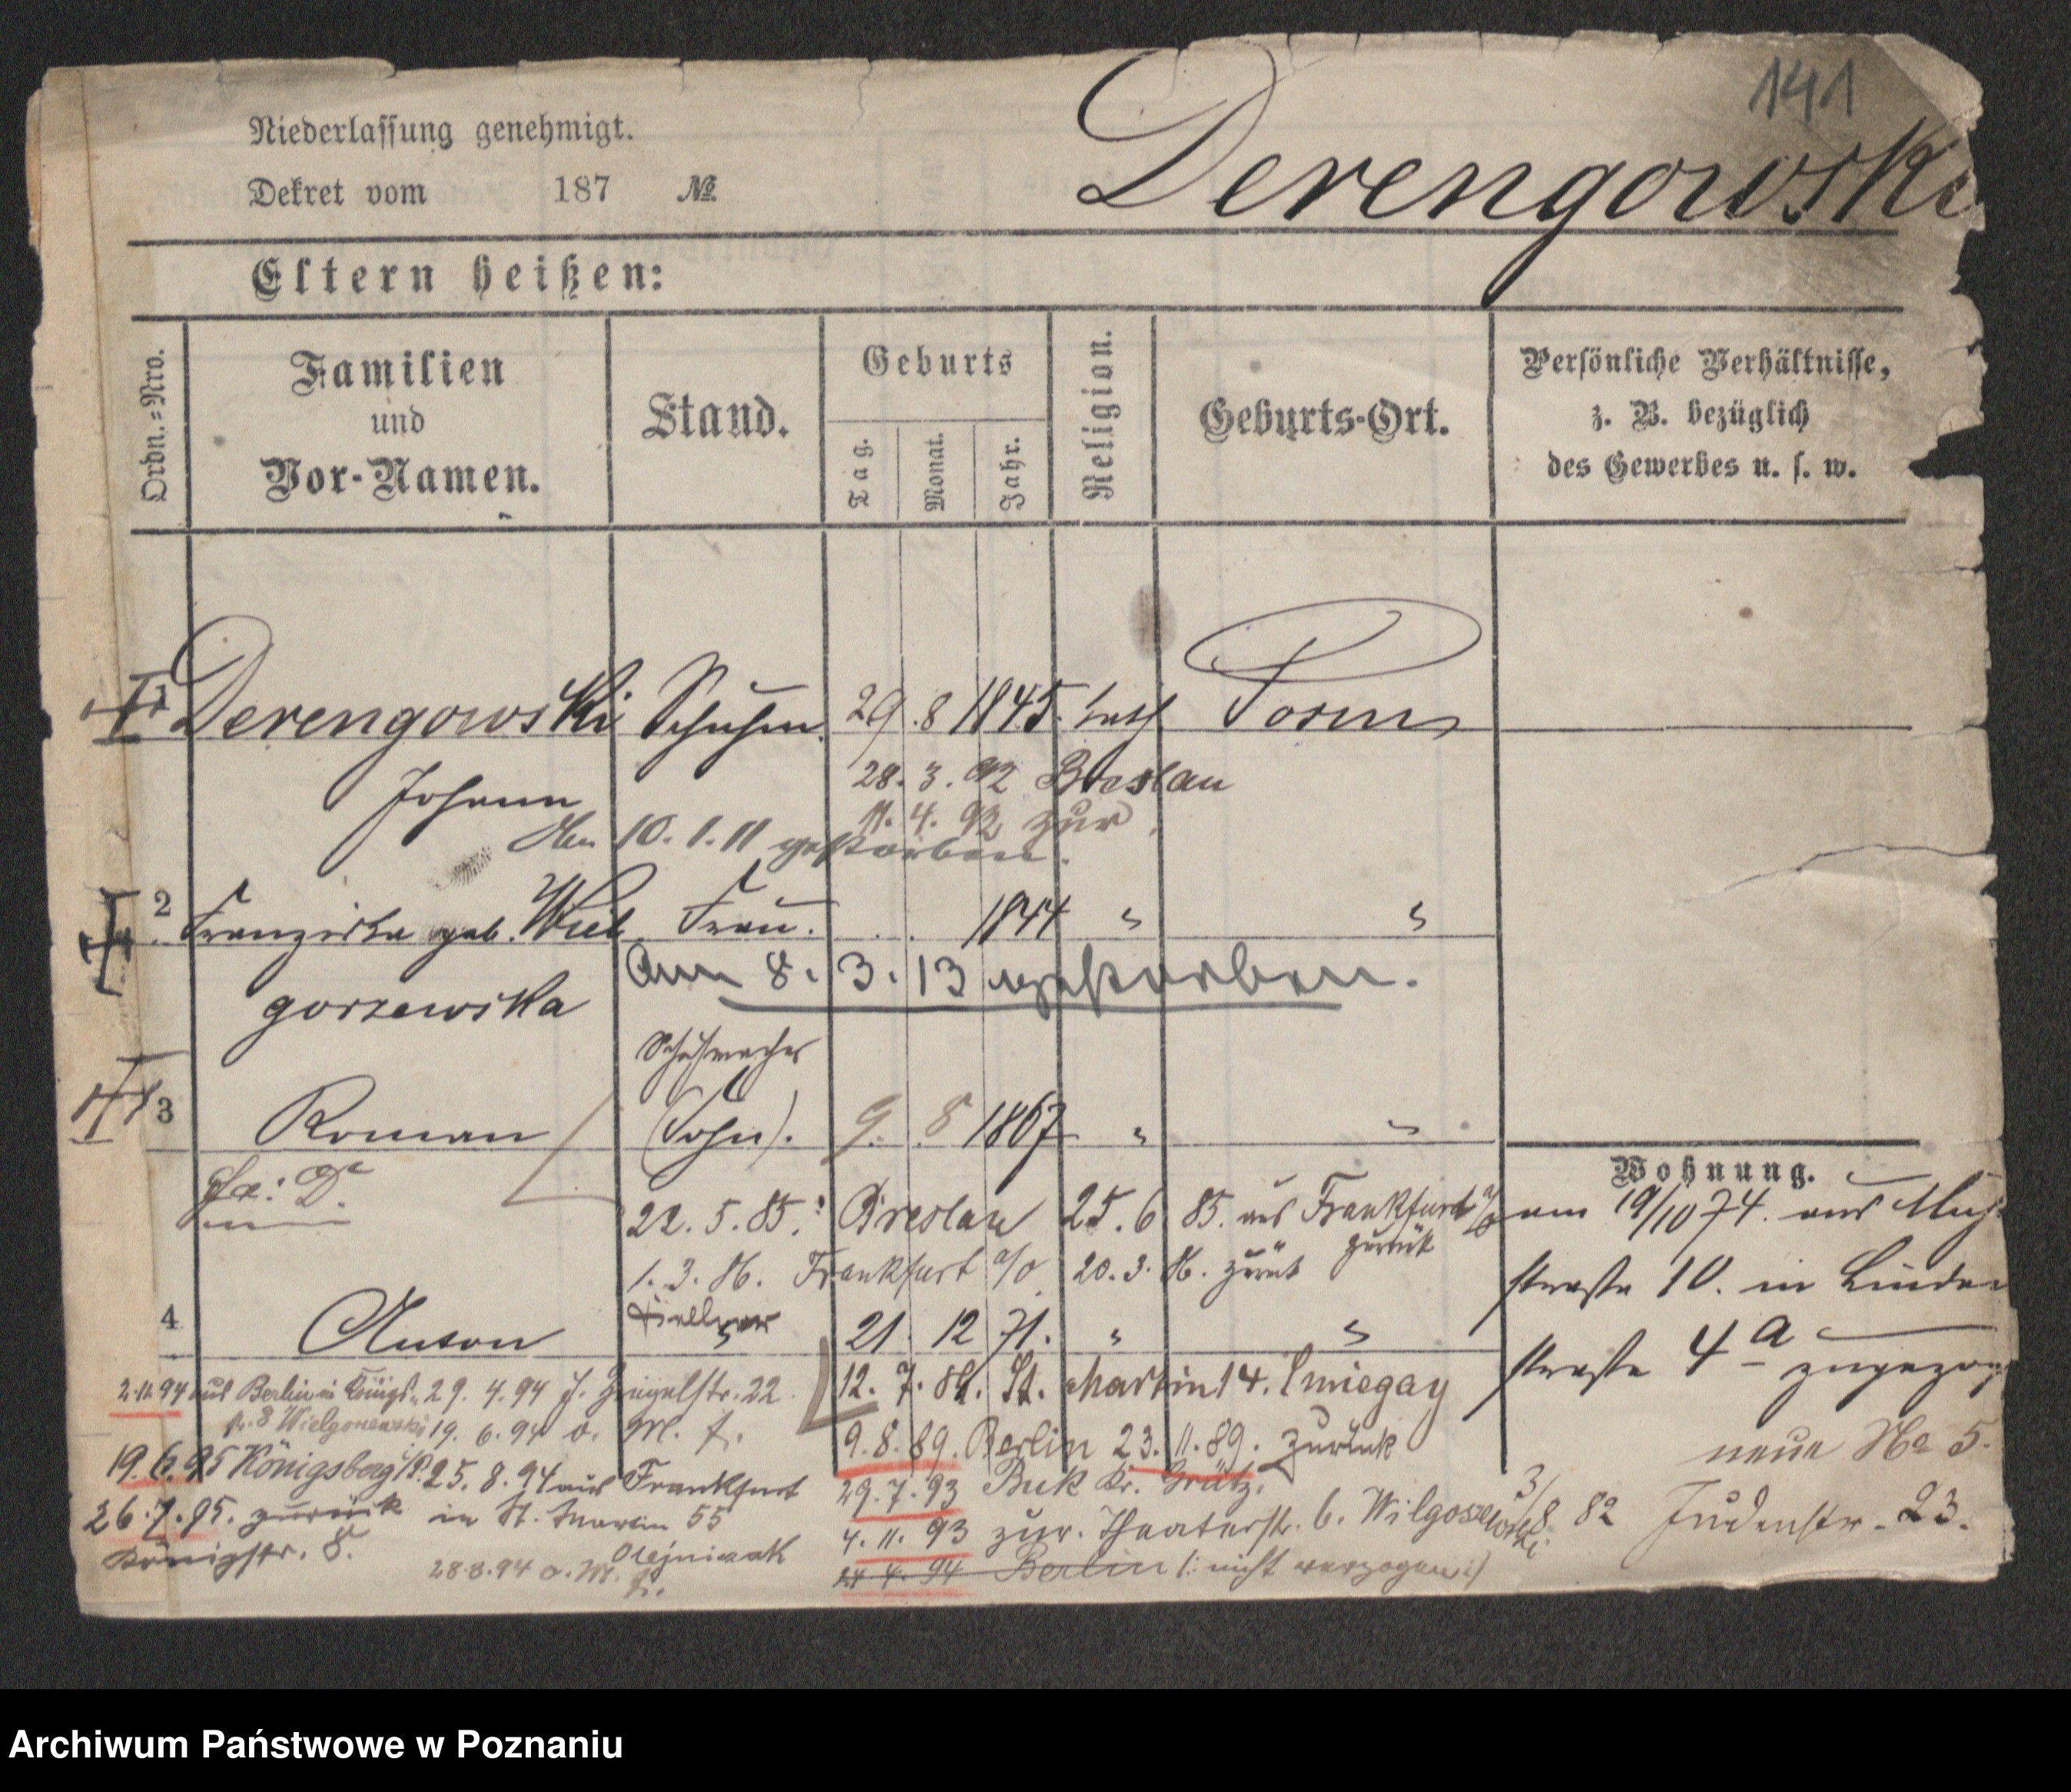 141
Niederlassung genehmigt.
Dekret vom 187 №
Derengowski
Eltern heißen:
Ordn.=Nro.
Familien
und
Vor-Namen.
Stand.
Geburts
Tag.
Monat.
Jahr.
Religion.
Geburts-Ort.
Persönliche Verhältnisse,
z. B. bezüglich
des Gewerbes u. s. w.
Derengowski Schuhm. 29. 8 1845. kath Posen
Johann
28. 3. 92 Breslau
11. 4. 92 zur.
10. 1. 11 gestorben.
2 Franziska geb. Wiel Frau. 1844 " "
gorzewska
Am 8. 3. 13 gestorben.
Schuhmacher
3 Roman (Sohn). 9. 8 1867 " "
22. 5. 85. Breslau 25. 6 85. aus Frankfurt a/O
zurück
1. 3. 86. Frankfurt a/O. 20. 3. 86. zurück
Kellner
4 Anton " 21. 12 71. " "
Wohnung.
am 19/10 74. aus
straße 10. in Linden
straße 4a
zugezog
neue No 5.
3/8 82 Judenstr. 23.
2.11.94 aus Berlin in Königs 29. 4. 94 Ziegelstr. 22.
8 Wielgorzewski 19. 6. 94
19. 6. 95 Königsberg i/P. 25. 8. 94 aus Frankfurt
26. 7. 95. zurück in St. Martin 55
Königstr. 8.
Olejniczak
28.8.94
12. 7. 88. St. Martin 14. Smiegay
9. 8. 89. Berlin 23. 11. 89. zurück
29. 7. 93 Buk Kr. Grätz.
4. 11. 93 zur. Theaterstr. 6. Wilgoszewski
24. 4. 94 Berlin (: nicht verzogen :)
Archiwum Państwowe w Poznaniu